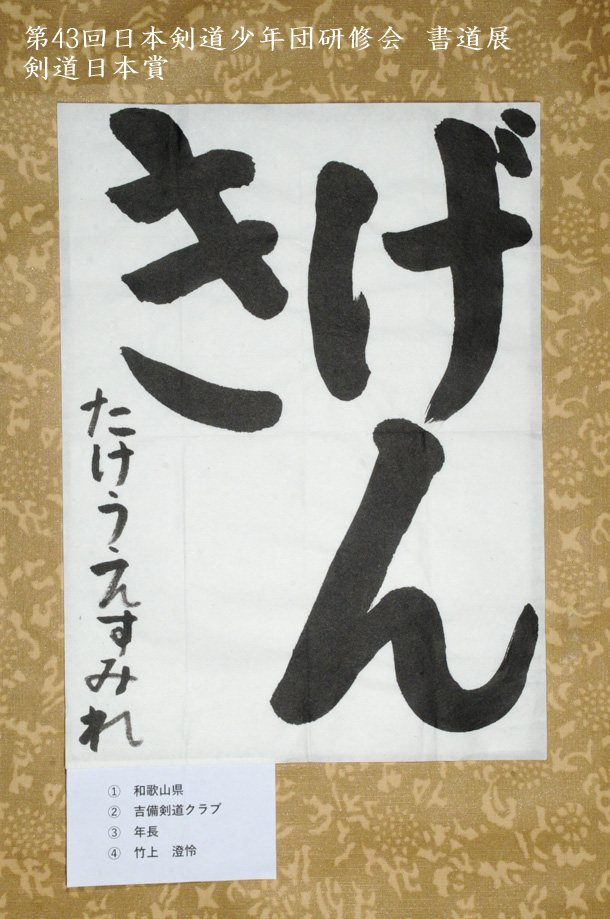 第43回日本剣道少年団研修会 書道展
剣道日本賞
げん
き
たけうえすみれ
① 和歌山県
② 吉備剣道クラブ
③ 年長
④ 竹上 澄怜